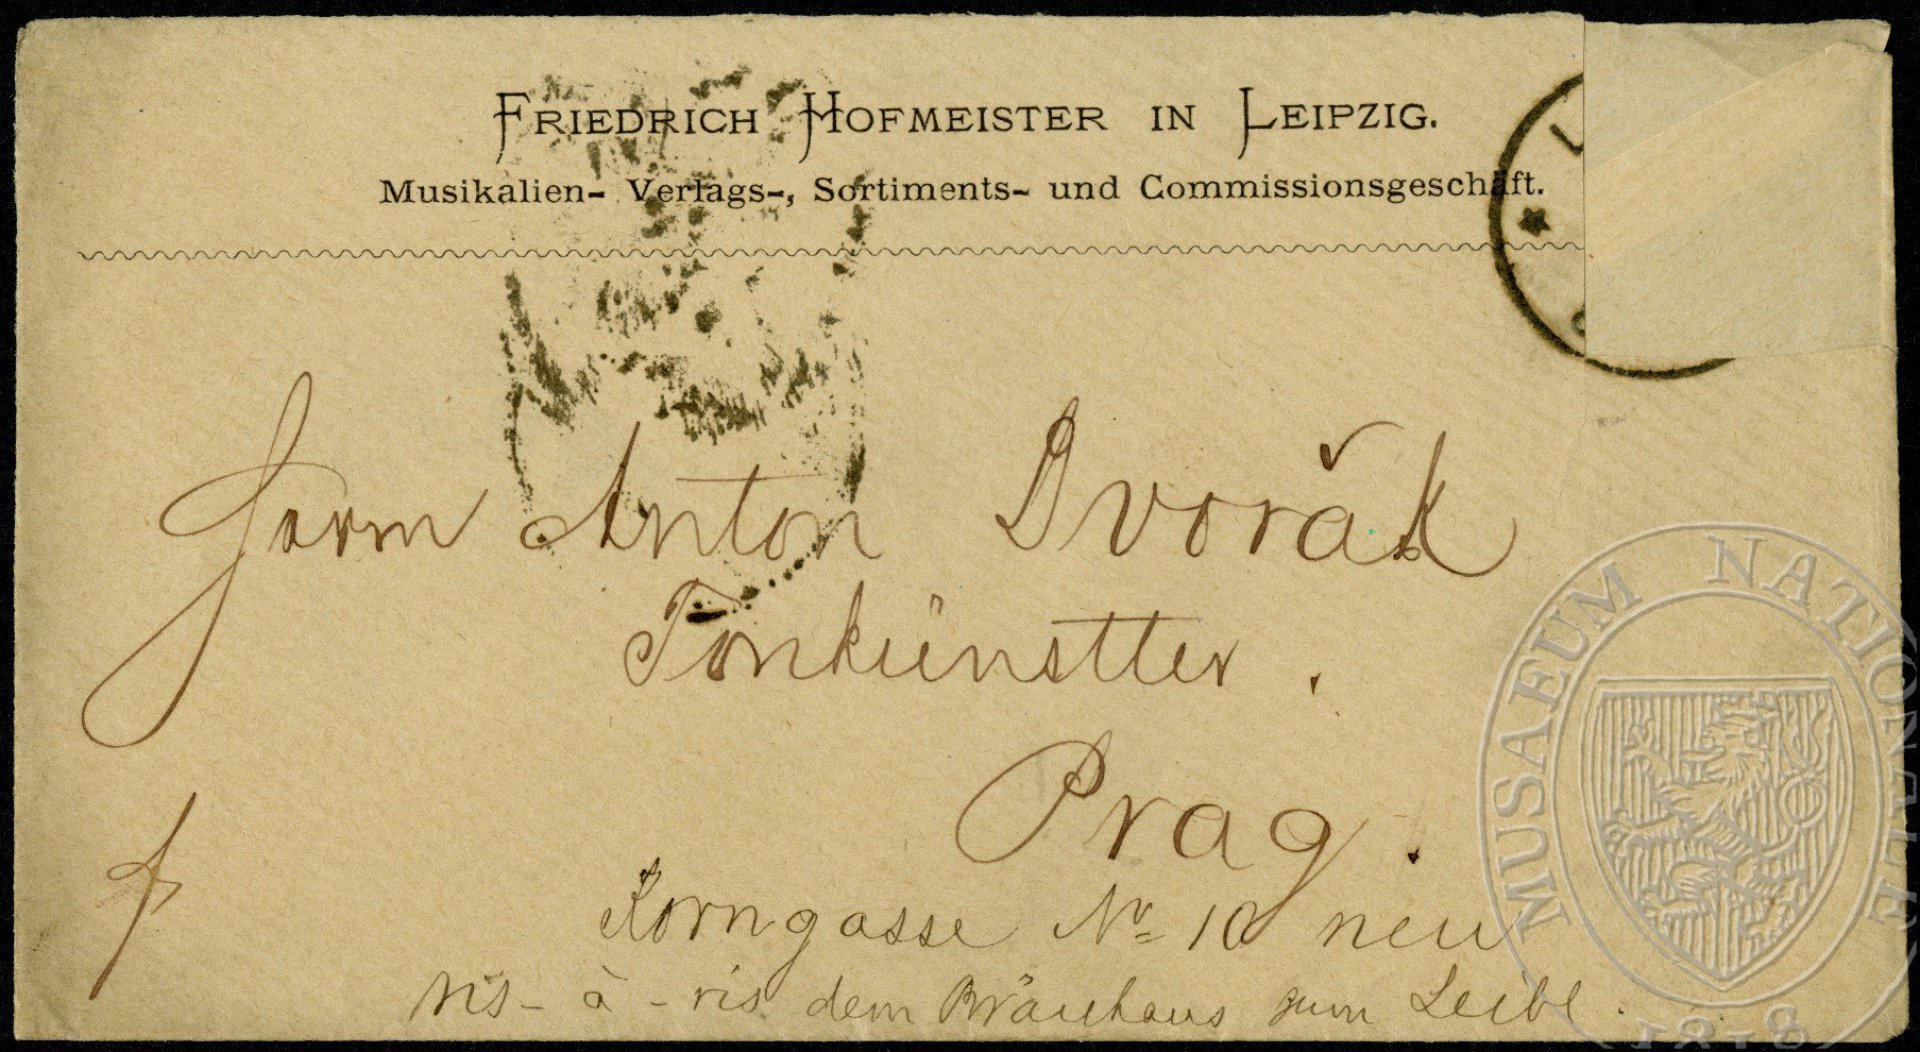 FRIEDRICH HOFMEISTER IN LEIPZIG.
Musikalien- Verlags-, Sortiments- und Commissionsgeschäft.
Herrn Anton Dvořák
Tonkünstler.
Prag.
Korngasse No 10 neu
vis-à-vis dem Bräuhaus zum
MUSAEUM NATIONALE
1818